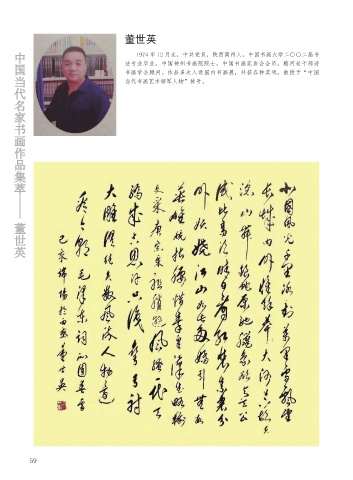 董世英
1974年12月生，中共党员，陕西商州人。中国书画大学二〇〇二届书
法专业毕业。中国神州书画院院士，中国书画家协会会员，
书画学会顾问。作品多次入选国内书画展，并获各种奖项。被授予“中国
当代书画艺术领军人物”称号。
中国当代名家书画作品集萃——董世英
北国风光千里冰封万里雪飘望
长城内外惟余莽莽大河上下顿失
滔山舞银蛇原驰蜡象欲与天公
试比高须晴日看红装素裹分
外妖娆江山如此多娇引无数
英雄竞折腰惜秦皇汉武略输
文采唐宗宋祖稍逊风骚一代天
骄成吉思汗只识弯弓射
大雕俱往矣数风流人物还
看今朝毛泽东词沁园春雪
己亥 董世英
59